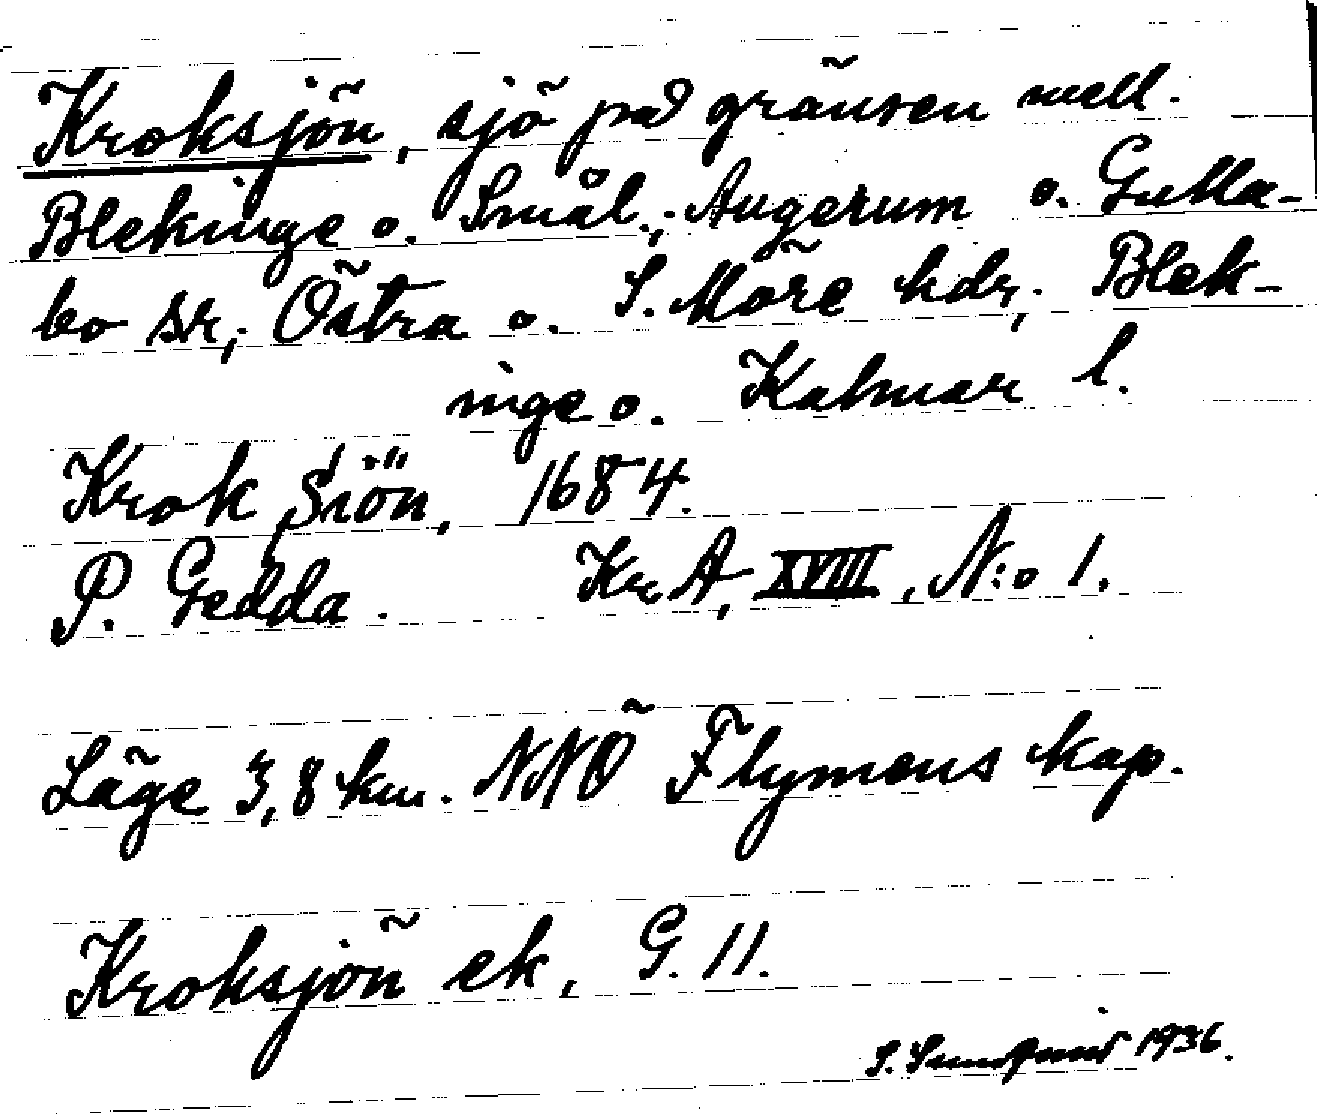 Kroksjön, sjö på gränsen mell.
Blekinge o. Smål.; Augerum o. Gulla-
bo sr; Östra o. S. Möre hdr; Blek-
inge o. Kalmar l.
Krok Siön, 1684.
P. Gedda. Kr A, XVIII, N:o 1.
Läge 3,8 km. NNÖ Flymens kap.
Kroksjön ek, G. 11.
S. Sundquist 1936.